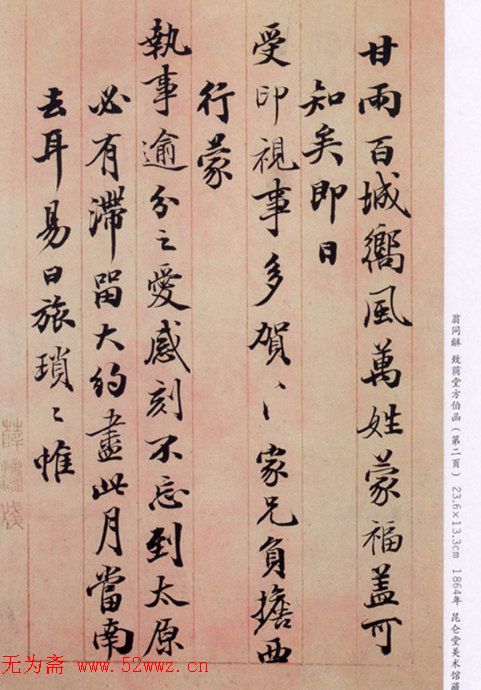 甘雨百城嚮風萬姓蒙福蓋可
知矣即日
受印視事多賀〻家兄負擔西
行蒙
執事逾分之愛感刻不忘到太原
必有滯留大約盡此月當南
去耳易曰旅瑣〻惟
翁同龢 致荫堂方伯函（第二頁） 23.6×13.3cm 1864年 昆仑堂美术馆藏
薛濤牋
无为斋 www.52wwz.cn